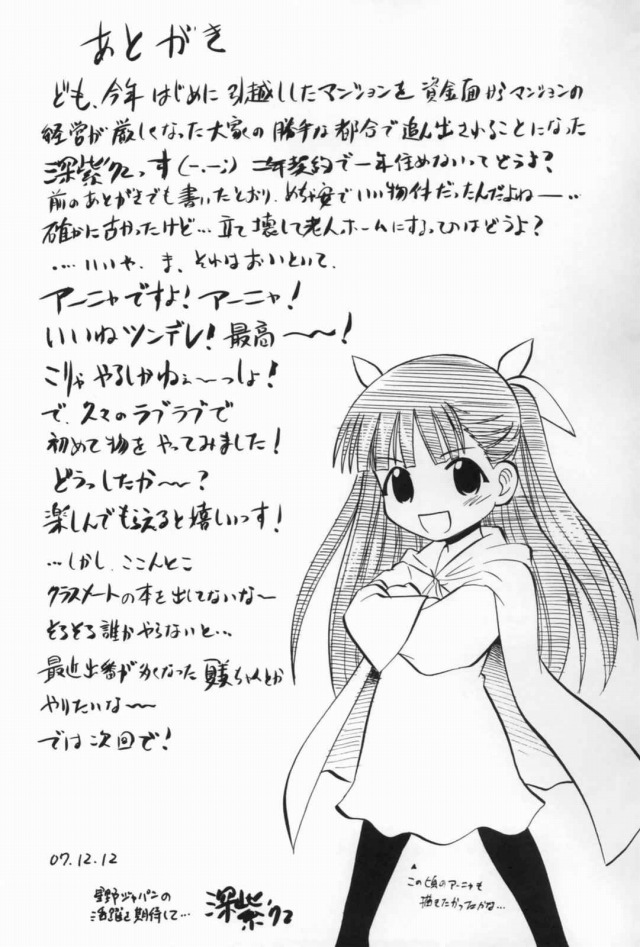 あとがき
ども、今年はじめに引越ししたマンションを資金面からマンションの
経営が厳しくなった大家の勝手な都合で追ん出されることになった
深紫'92っす(ー.ー;) 二年契約で一年住めないってどうよ?
前のあとがきでも書いたとおり、めちゃ安でいい物件だったんだよねー…
確かに古かったけど…立て壊して老人ホームにするってのはどうよ?
…いいや、ま、それはおいといて、
アーニャですよ!アーニャ!
いいねツンデレ!最高〜〜!
こりゃやるしかねぇーっしょ!
で、久々のラブラブで
初めて物をやってみました!
どうっしたか〜〜?
楽しんでもらえると嬉しいっす!
…しかし、ここんとこ
クラスメートの本を出してないな〜
そろそろ誰かやらないと…
最近出番が多くなった
ちゃんとか
やりたいな〜〜
では次回で!
07.12.12
星野ジャパンの
活躍を期待して…
深紫'92
この頃のアーニャも
描きたかったかな…